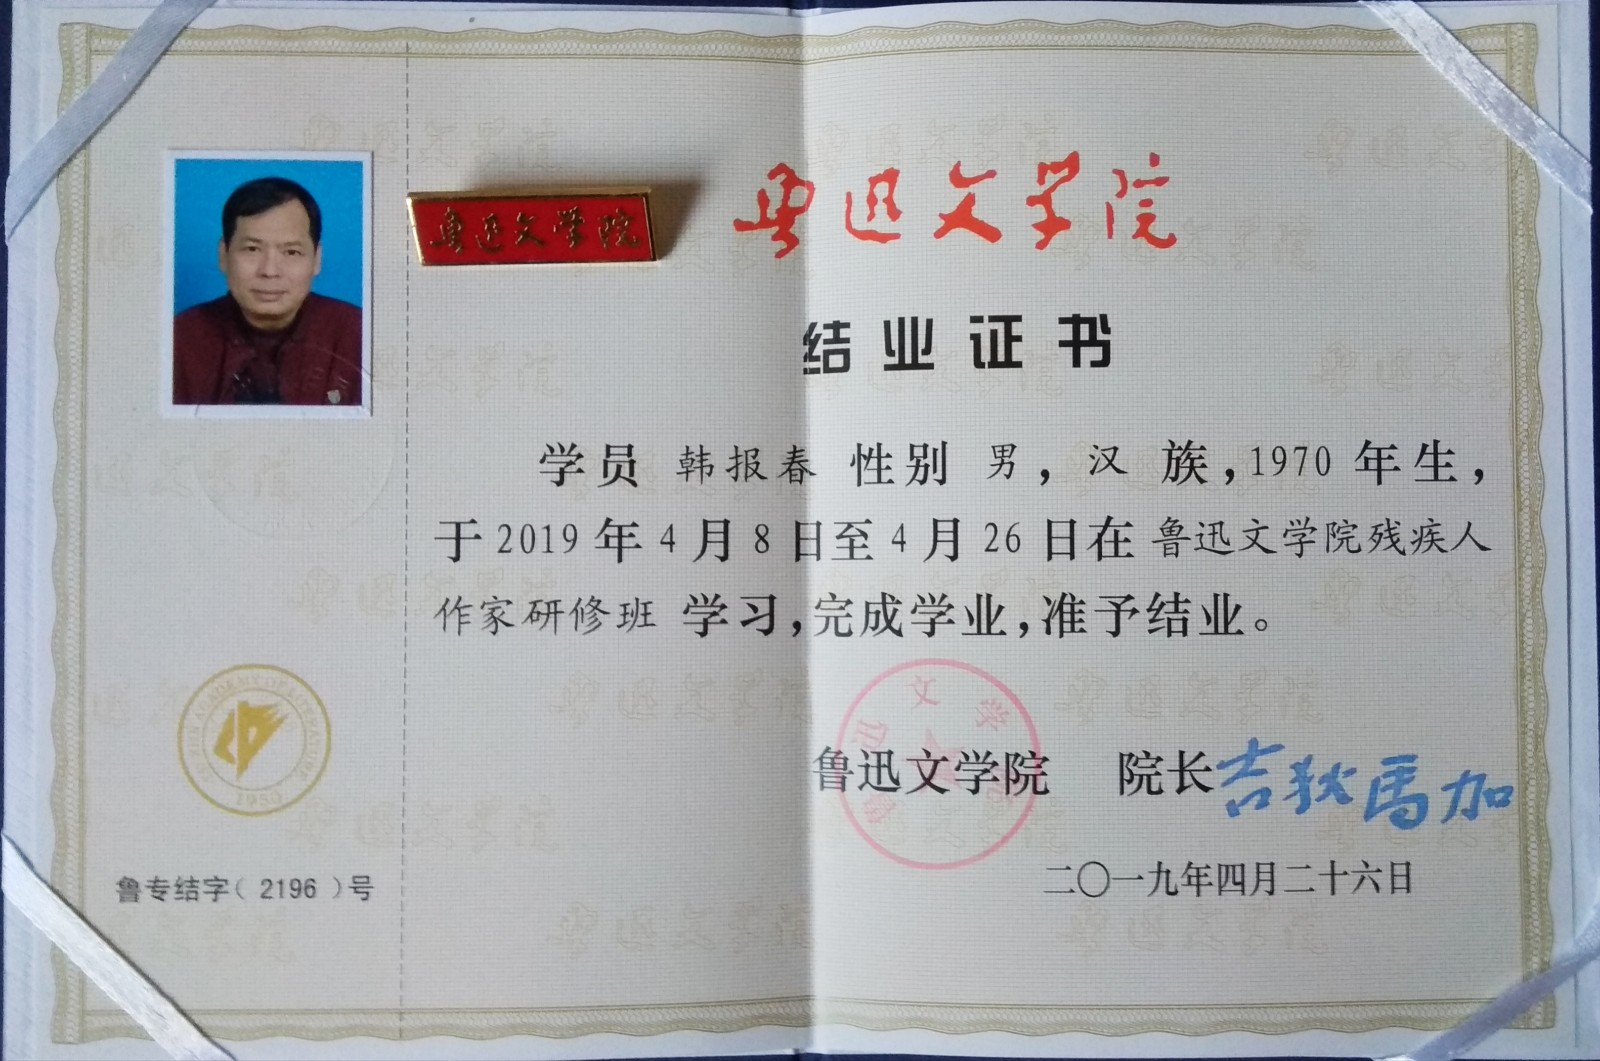 鲁迅文学院
鲁迅文学院
结业证书
学员 韩报春 性别 男，汉 族，1970 年生，
于 2019 年 4 月 8 日至 4 月 26 日在 鲁迅文学院残疾人
作家研修班 学习，完成学业，准予结业。
鲁迅文学院 院长 吉狄馬加
二〇一九年四月二十六日
鲁迅文学院
LU XUN ACADEMY OF LITERATURE
1950
鲁专结字（2196）号